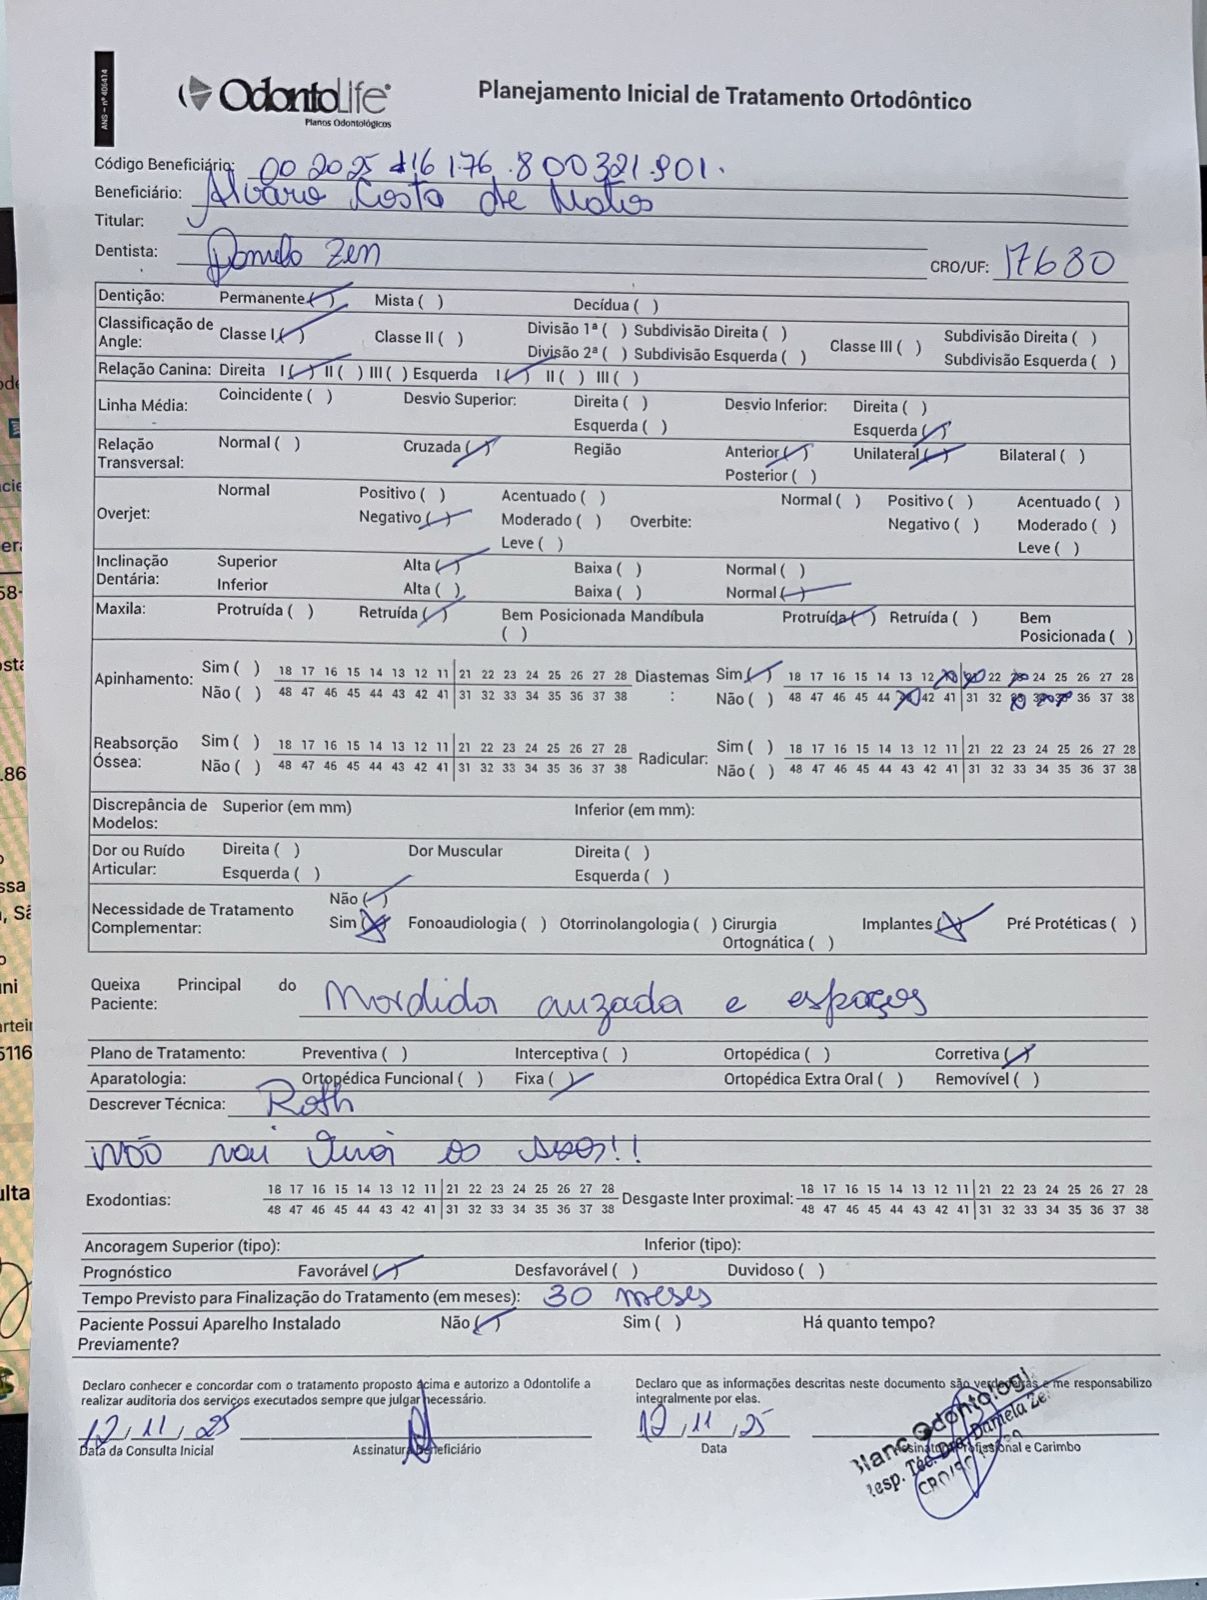 ANS - nº 406414
OdontoLife
Planos Odontológicos
Planejamento Inicial de Tratamento Ortodôntico
Código Beneficiário: 00 2025 416176.800321.901.
Beneficiário: Alvaro Costa de Matos
Titular:
Dentista: Daniela Zen CRO/UF: 17680
Dentição: Permanente (✓) Mista ( ) Decídua ( )
Classificação de Angle: Classe I (✓) Classe II ( ) Divisão 1ª ( ) Subdivisão Direita ( ) Classe III ( ) Subdivisão Direita ( )
Divisão 2ª ( ) Subdivisão Esquerda ( ) Subdivisão Esquerda ( )
Relação Canina: Direita I (✓) II ( ) III ( ) Esquerda I (✓) II ( ) III ( )
Linha Média: Coincidente ( ) Desvio Superior: Direita ( ) Desvio Inferior: Direita ( )
Esquerda ( ) Esquerda (✓)
Relação Transversal: Normal ( ) Cruzada (✓) Região Anterior (✓) Unilateral (✓) Bilateral ( )
Posterior ( )
Overjet: Normal Positivo ( ) Acentuado ( ) Overbite: Normal ( ) Positivo ( ) Acentuado ( )
Negativo (✓) Moderado ( ) Negativo ( ) Moderado ( )
Leve ( ) Leve ( )
Inclinação Dentária: Superior Alta (✓) Baixa ( ) Normal ( )
Inferior Alta ( ) Baixa ( ) Normal (✓)
Maxila: Protruída ( ) Retruída (✓) Bem Posicionada ( ) Mandíbula Protruída (✓) Retruída ( ) Bem Posicionada ( )
Apinhamento: Sim ( ) 18 17 16 15 14 13 12 11 21 22 23 24 25 26 27 28 Diastemas: Sim (✓) 18 17 16 15 14 13 12 22 24 25 26 27 28
Não ( ) 48 47 46 45 44 43 42 41 31 32 33 34 35 36 37 38 Não ( ) 48 47 46 45 44 42 41 31 32 36 37 38
Reabsorção Óssea: Sim ( ) 18 17 16 15 14 13 12 11 21 22 23 24 25 26 27 28 Radicular: Sim ( ) 18 17 16 15 14 13 12 11 21 22 23 24 25 26 27 28
Não ( ) 48 47 46 45 44 43 42 41 31 32 33 34 35 36 37 38 Não ( ) 48 47 46 45 44 43 42 41 31 32 33 34 35 36 37 38
Discrepância de Modelos: Superior (em mm) Inferior (em mm):
Dor ou Ruído Articular: Direita ( ) Dor Muscular Direita ( )
Esquerda ( ) Esquerda ( )
Necessidade de Tratamento Complementar: Não (✓)
Sim (X) Fonoaudiologia ( ) Otorrinolangologia ( ) Cirurgia Ortognática ( ) Implantes (X) Pré Protéticas ( )
Queixa Principal do Paciente: Mordida cruzada e espaços
Plano de Tratamento: Preventiva ( ) Interceptiva ( ) Ortopédica ( ) Corretiva (✓)
Aparatologia: Ortopédica Funcional ( ) Fixa (✓) Ortopédica Extra Oral ( ) Removível ( )
Descrever Técnica: Roth
não vai os sisos!!
Exodontias: 18 17 16 15 14 13 12 11 21 22 23 24 25 26 27 28 Desgaste Inter proximal: 18 17 16 15 14 13 12 11 21 22 23 24 25 26 27 28
48 47 46 45 44 43 42 41 31 32 33 34 35 36 37 38 48 47 46 45 44 43 42 41 31 32 33 34 35 36 37 38
Ancoragem Superior (tipo): Inferior (tipo):
Prognóstico Favorável (✓) Desfavorável ( ) Duvidoso ( )
Tempo Previsto para Finalização do Tratamento (em meses): 30 meses
Paciente Possui Aparelho Instalado Previamente? Não (✓) Sim ( ) Há quanto tempo?
Declaro conhecer e concordar com o tratamento proposto ácima e autorizo a Odontolife a realizar auditoria dos serviços executados sempre que julgar necessário.
Declaro que as informações descritas neste documento são verdadeiras e me responsabilizo integralmente por elas.
12,11,25
12,11,25
Data da Consulta Inicial Assinatura Beneficiário Data Assinatura Profissional e Carimbo
Odontologi
Resp. Téc. Dra. Daniela Ze